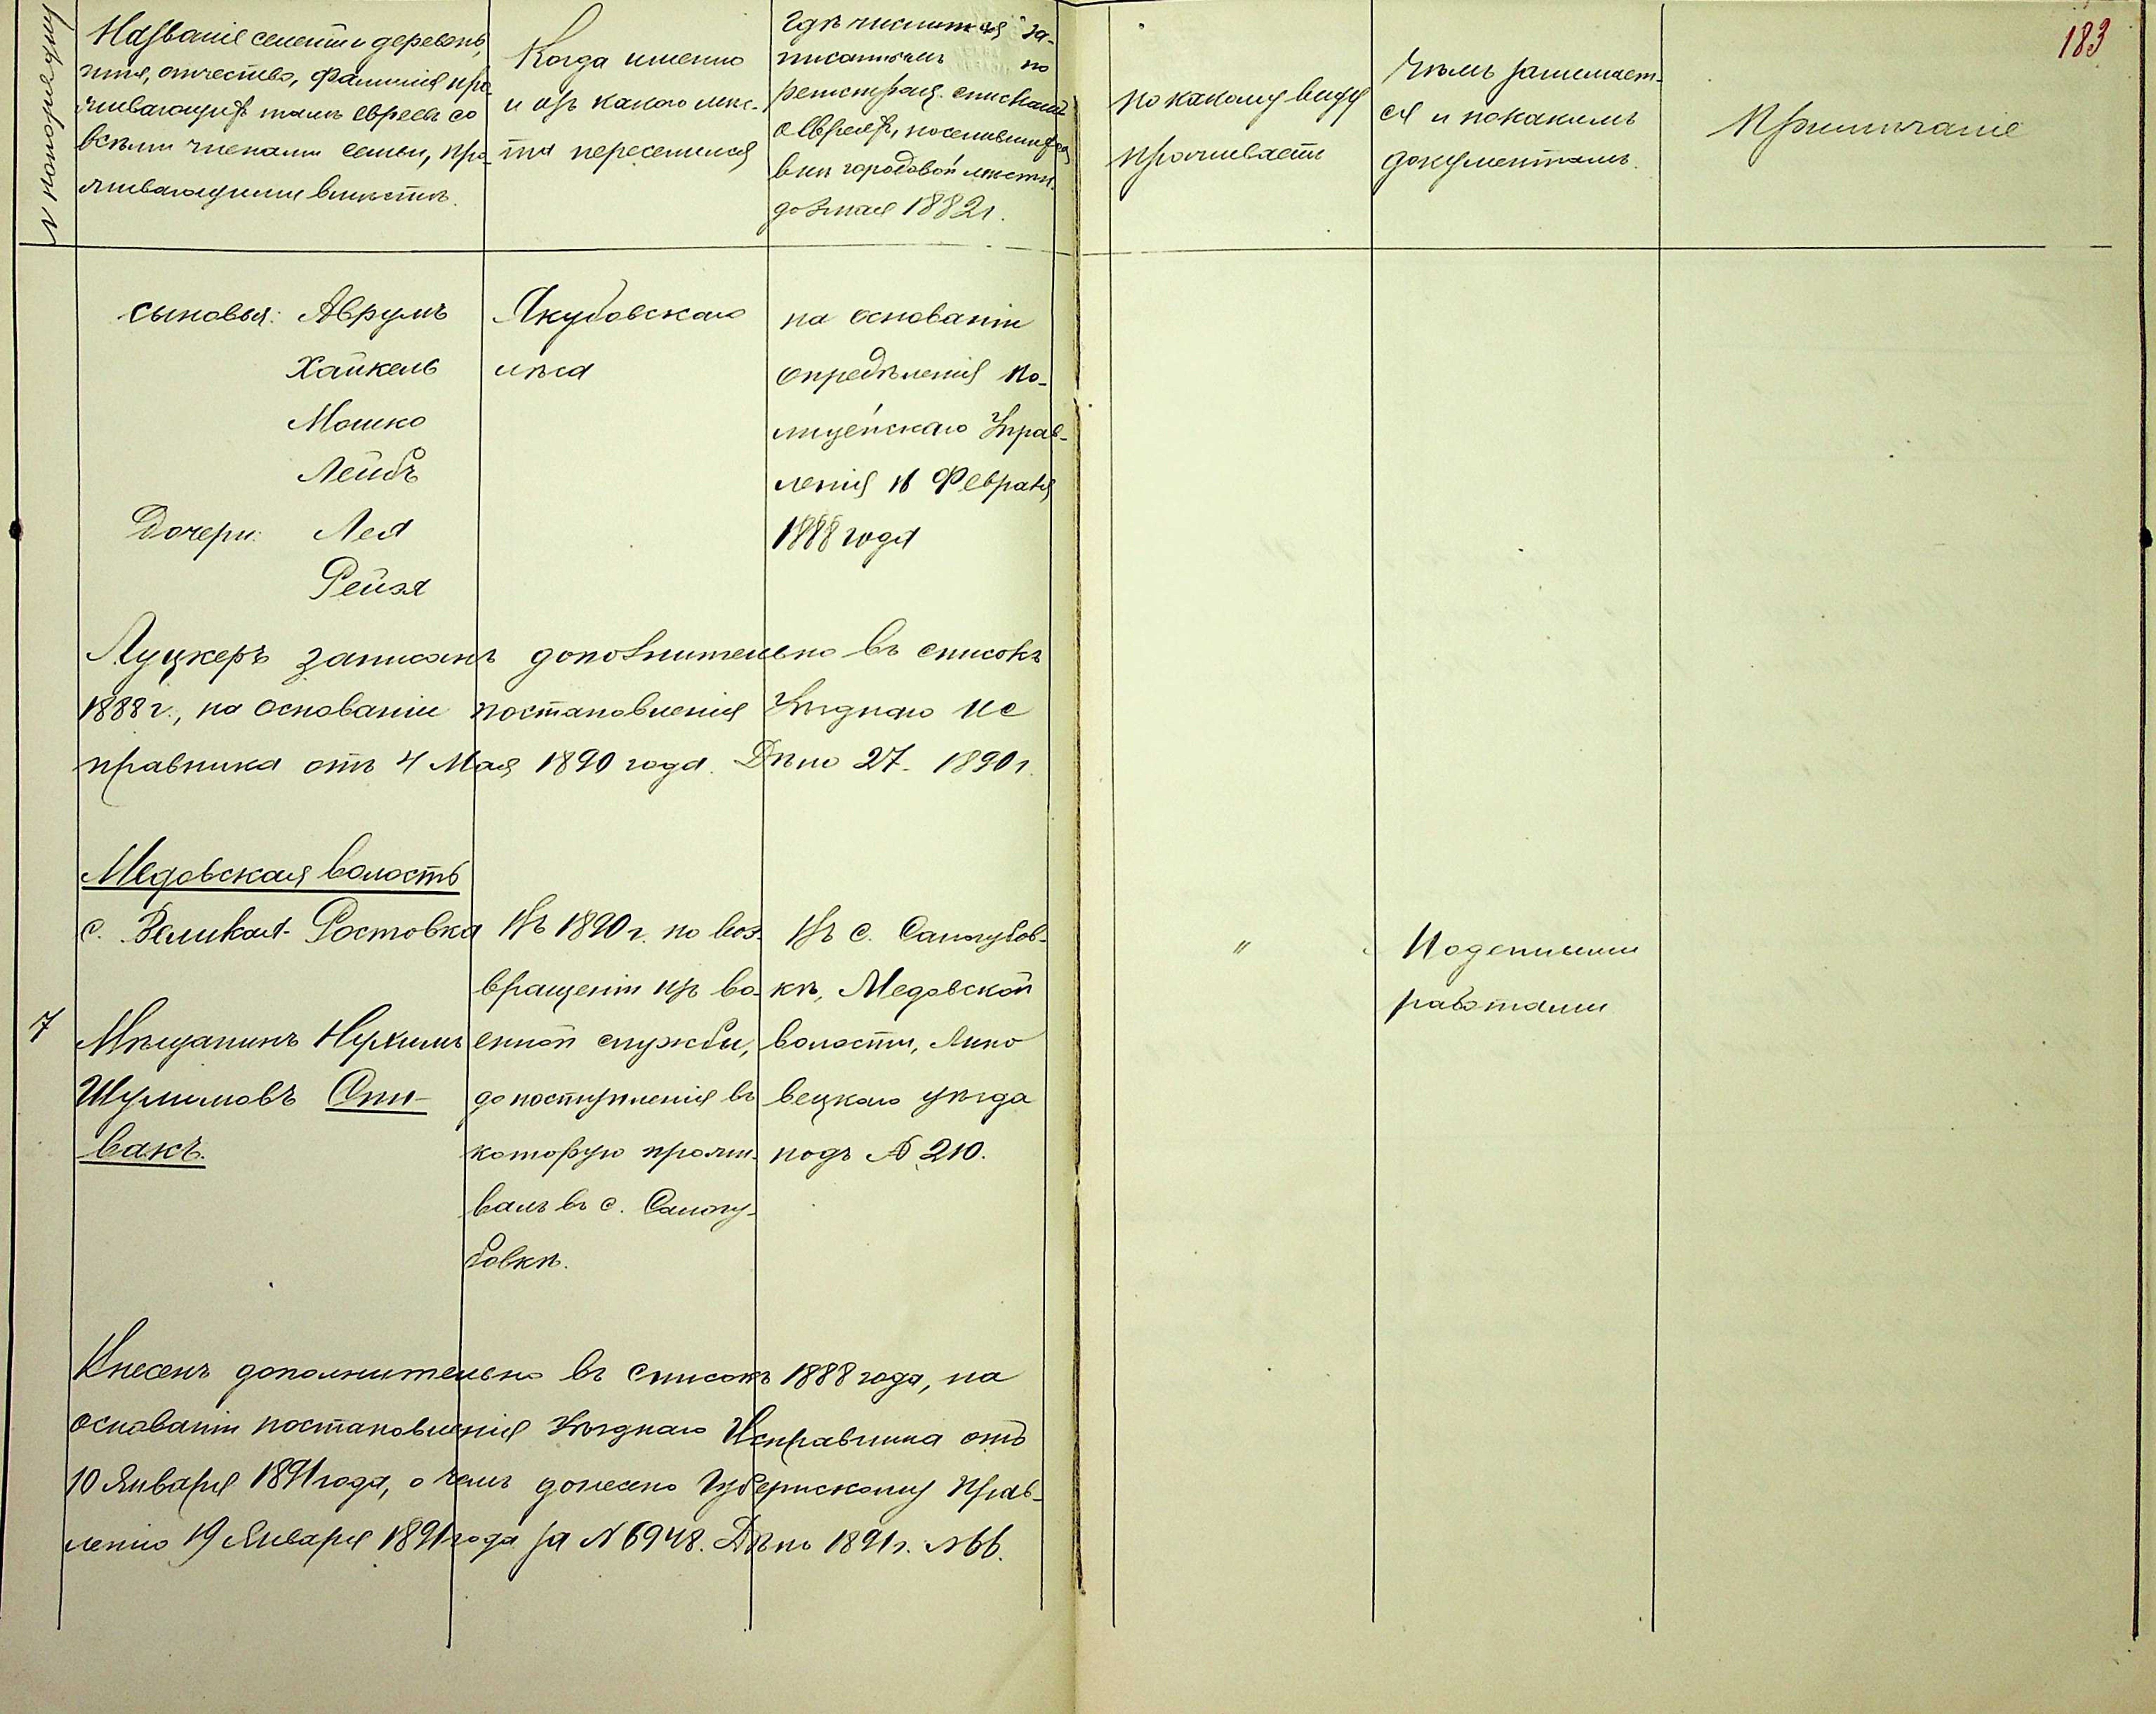 183
№ по порядку
Названіе селеній и деревень,
имя, отчество, фамилія про-
живающихъ тамъ евреевъ со
всѣми членами семьи, про-
живающими вмѣстѣ.
Когда именно
и изъ какого мѣс-
та переселился
Гдѣ числится за-
писаннымъ по
регистрац. спискамъ
о евреяхъ, поселившихся
внѣ городовой мѣстн.
до 3 мая 1882 г.
по какому виду
проживаетъ
Чѣмъ занимает-
ся и по какимъ
документамъ.
Примѣчаніе
сыновья: Аврумъ
Хайкель
Мошко
Лейбъ
Дочери: Лея
Рейзя
Якубовскаго
лѣса
на основаніи
опредѣленія По-
лицейскаго Управ-
ленія 16 Февраля
1888 года
Луцкеръ записанъ дополнительно въ списокъ
1888 г., на основаніи постановленія Уѣзднаго Ис
правника отъ 4 Мая 1890 года. Дѣло 27. 1890 г.
Медовская волость
с. Великая-Ростовка
7
Мѣщанинъ Нухимъ
Шулимовъ Спи-
вакъ.
Въ 1890 г. по воз-
вращеніи изъ во-
енной службы,
до поступленія въ
которую прожи-
валъ въ с. Самгу-
бовкѣ.
Въ с. Самгубов-
кѣ, Медовской
волости, Липо
вецкаго уѣзда
подъ № 210.
"
Поденными
работами
Внесенъ дополнительно въ списокъ 1888 года, на
основаніи постановленія Уѣзднаго Исправника отъ
10 Января 1891 года, о чемъ донесено Губернскому Прав-
ленію 19 Января 1891 года за № 6948. Дѣло 1891 г. № 66.